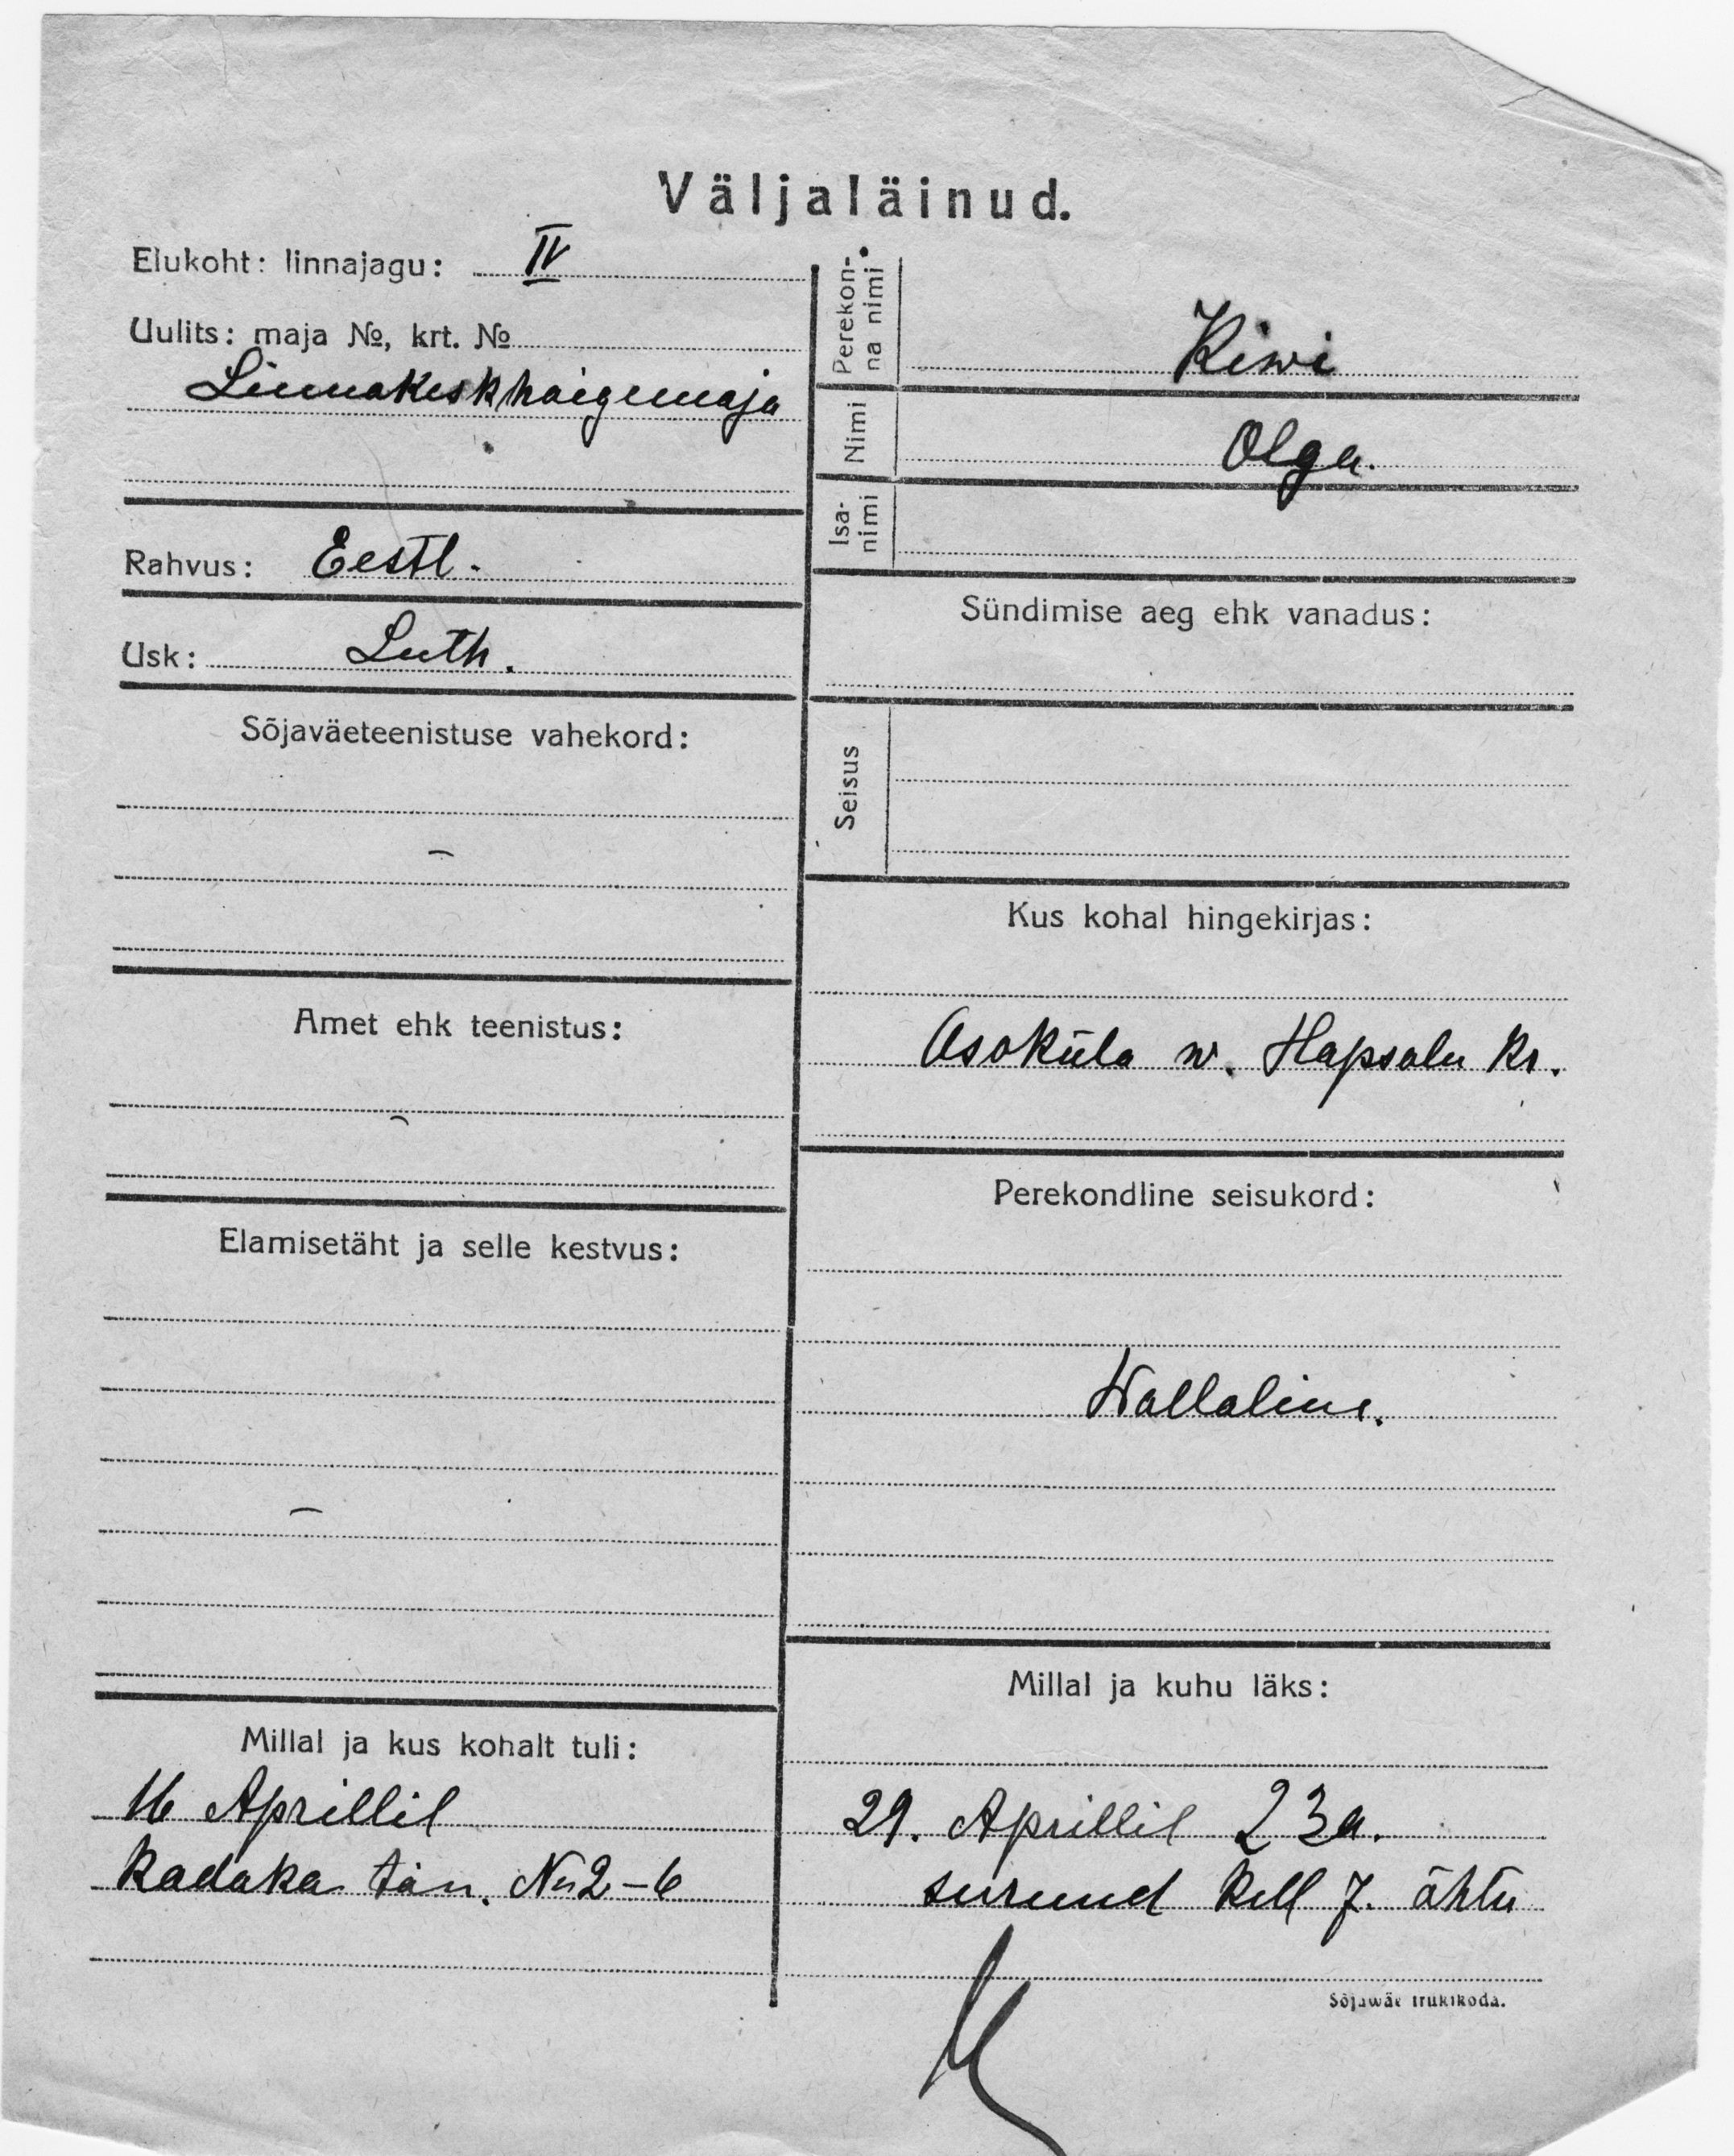 Väljaläinud.
Elukoht: linnajagu: IV
Uulits: maja №, krt. №
Linnakeskhaigemaja
Rahvus: Eestl.
Usk: Luth.
Sõjaväeteenistuse vahekord:
–
Amet ehk teenistus:
–
Elamisetäht ja selle kestvus:
–
Millal ja kus kohalt tuli:
16 Aprillil
Kadaka tän. № 2–6
Perekon-
na nimi
Kiwi
Nimi
Olga.
Isa-
nimi
Sündimise aeg ehk vanadus:
Seisus
Kus kohal hingekirjas:
Asoküla w. Hapsalu kr.
Perekondline seisukord:
Wallaline.
Millal ja kuhu läks:
29. Aprillil 23a.
surnud kell 7. õhtu
Sõjawäe trükikoda.